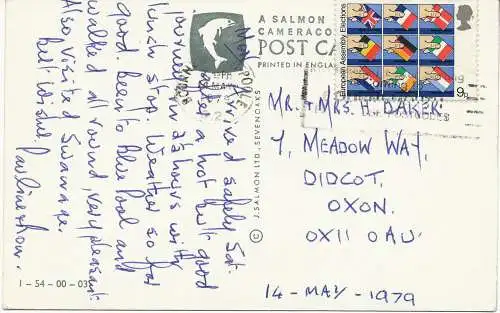 A SALMON
CAMERACO
POST CA
PRINTED IN ENGLAN
European Assembly Elections
9p
© J. SALMON LTD., SEVENOAKS
1 - 54 - 00 - 03
arrived safely Sat.
after a hot but good
journey 2½ hours with
lunch stop. Weather so far
good. Been to Blue Pool and
walked all round, very pleasant.
Also visited Swanage.
Best wishes. Pauline
MR. & MRS. H. BAKER.
7, MEADOW WAY,
DIDCOT,
OXON.
OX11 0AU
14-MAY-1979